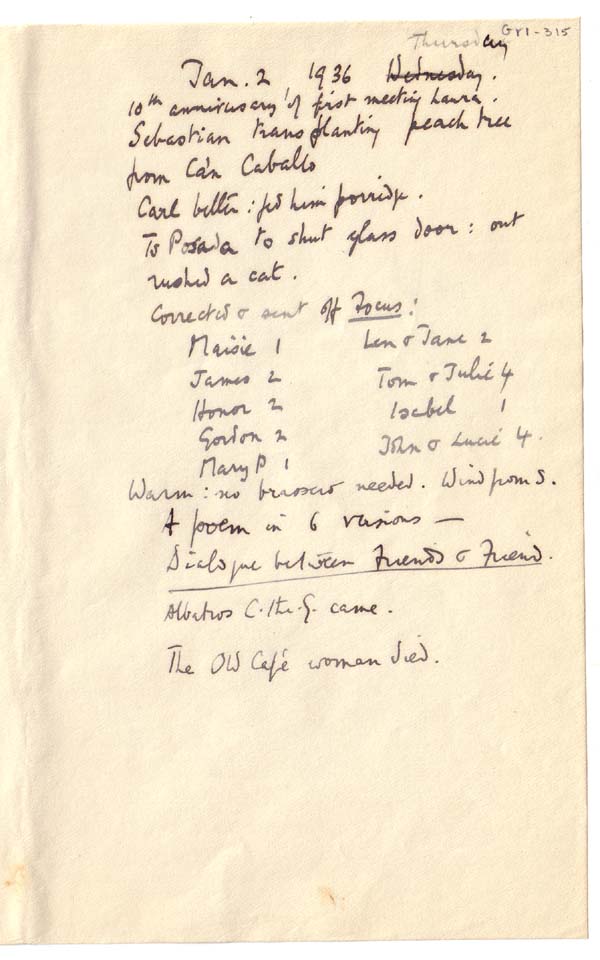 GV1-315
Thursday
Jan. 2 1936 Wednesday.
10th anniversary of first meeting Laura.
Sebastian transplanting peach tree
from Ca'n Caballo
Carl better: fed him porridge.
To Posada to shut glass door: out
rushed a cat.
Corrected & sent off Focus:
Maisie 1 Len & Jane 2
James 2 Tom & Julie 4
Honor 2 Isabel 1
Gordon 2 John & Lucie 4.
Mary P 1
Warm: no brasero needed. Wind from S.
A poem in 6 versions —
Dialogue between Friends & Friend.
Albatros C.-the-G. came.
The Old Café woman died.